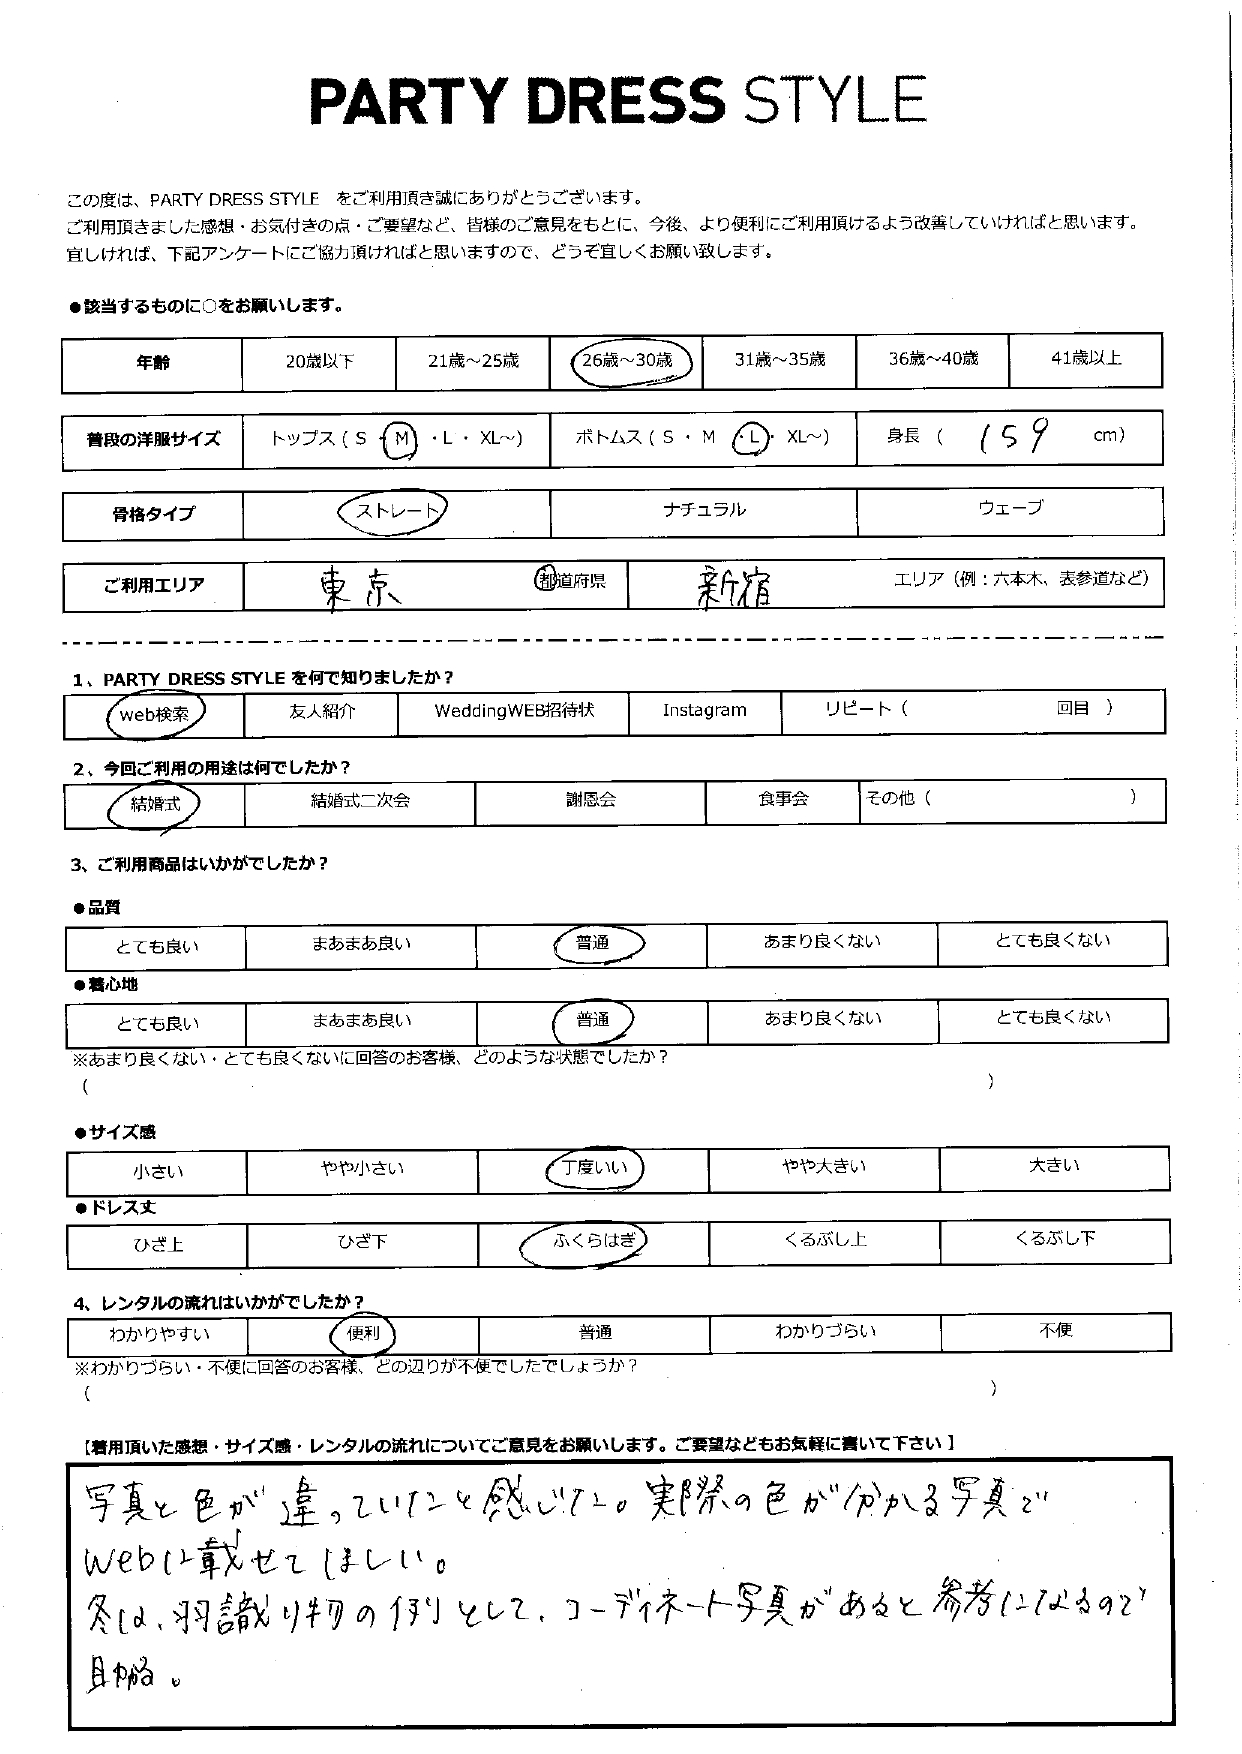 PARTY DRESS STYLE
この度は、PARTY DRESS STYLE をご利用頂き誠にありがとうございます。
ご利用頂きました感想・お気付きの点・ご要望など、皆様のご意見をもとに、今後、より便利にご利用頂けるよう改善していければと思います。
宜しければ、下記アンケートにご協力頂ければと思いますので、どうぞ宜しくお願い致します。
●該当するものに○をお願いします。
年齢 20歳以下 21歳～25歳 26歳～30歳 31歳～35歳 36歳～40歳 41歳以上
普段の洋服サイズ トップス ( S ・ M ・ L ・ XL～) ボトムス ( S ・ M ・ L ・ XL～) 身長 ( 159 cm)
骨格タイプ ストレート ナチュラル ウェーブ
ご利用エリア 東京 都道府県 新宿 エリア（例：六本木、表参道など）
1、PARTY DRESS STYLE を何で知りましたか？
web検索 友人紹介 WeddingWEB招待状 Instagram リピート（ 回目 ）
2、今回ご利用の用途は何でしたか？
結婚式 結婚式二次会 謝恩会 食事会 その他（ ）
3、ご利用商品はいかがでしたか？
●品質
とても良い まあまあ良い 普通 あまり良くない とても良くない
●着心地
とても良い まあまあ良い 普通 あまり良くない とても良くない
※あまり良くない・とても良くないに回答のお客様、どのような状態でしたか？
( )
●サイズ感
小さい やや小さい 丁度いい やや大きい 大きい
●ドレス丈
ひざ上 ひざ下 ふくらはぎ くるぶし上 くるぶし下
4、レンタルの流れはいかがでしたか？
わかりやすい 便利 普通 わかりづらい 不便
※わかりづらい・不便に回答のお客様、どの辺りが不便でしたでしょうか？
( )
【着用頂いた感想・サイズ感・レンタルの流れについてご意見をお願いします。ご要望などもお気軽に書いて下さい】
写真と色が違っていたと感じた。実際の色が分かる写真で
Webに載せてほしい。
冬は、羽識り物の例として、コーディネート写真があると参考になるので
助かる。